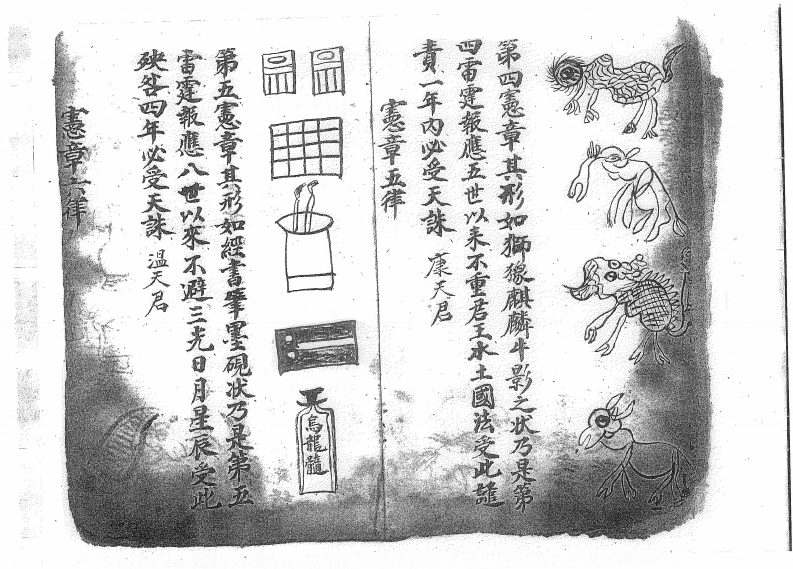 第四憲章其形如獅猴麒麟牛影之状乃是第
四雷霆報應五世以来不重君王水土國法受此譴
責一年內必受天誅 康天君
憲章五律
烏龍髓
第五憲章其形如經書筆墨硯状乃是第五
雷霆報應八世以來不避三光日月星辰受此
殃咎四年必受天誅 溫天君
憲章六律